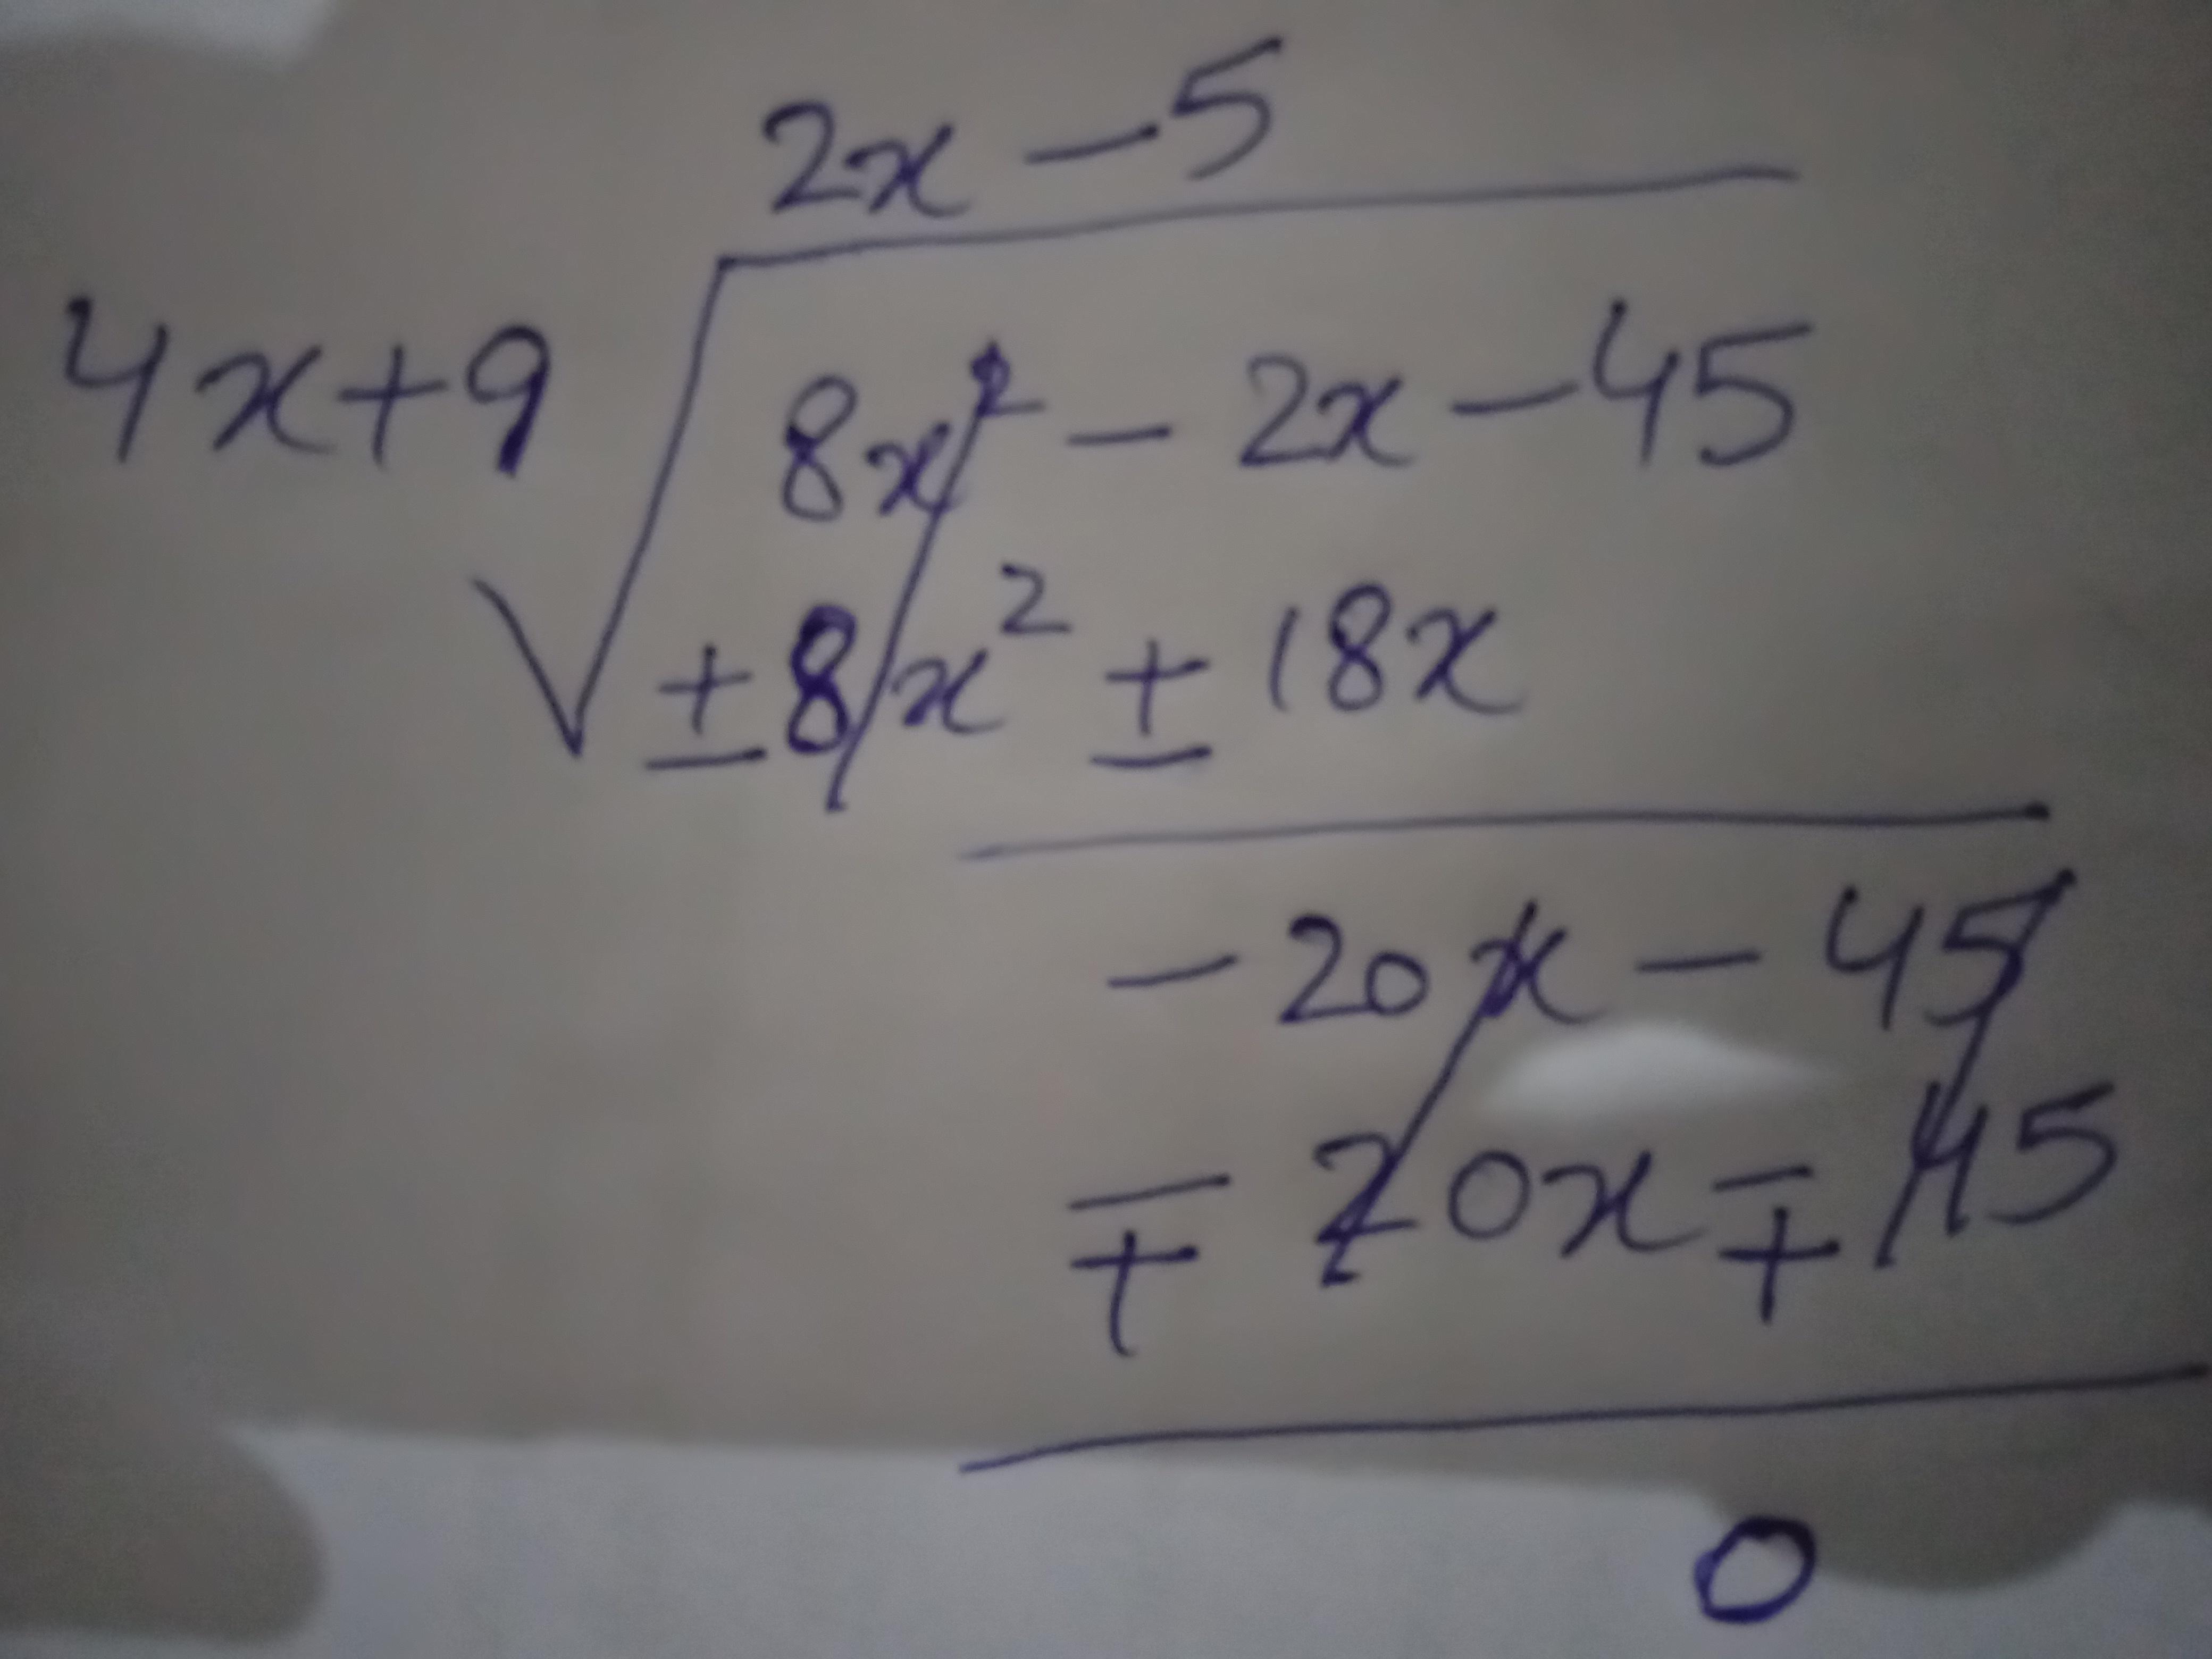 2x - 5
4x+9 √ 8x² - 2x - 45
± 8x² ± 18x
- 20x - 45
∓ 20x ∓ 45
0